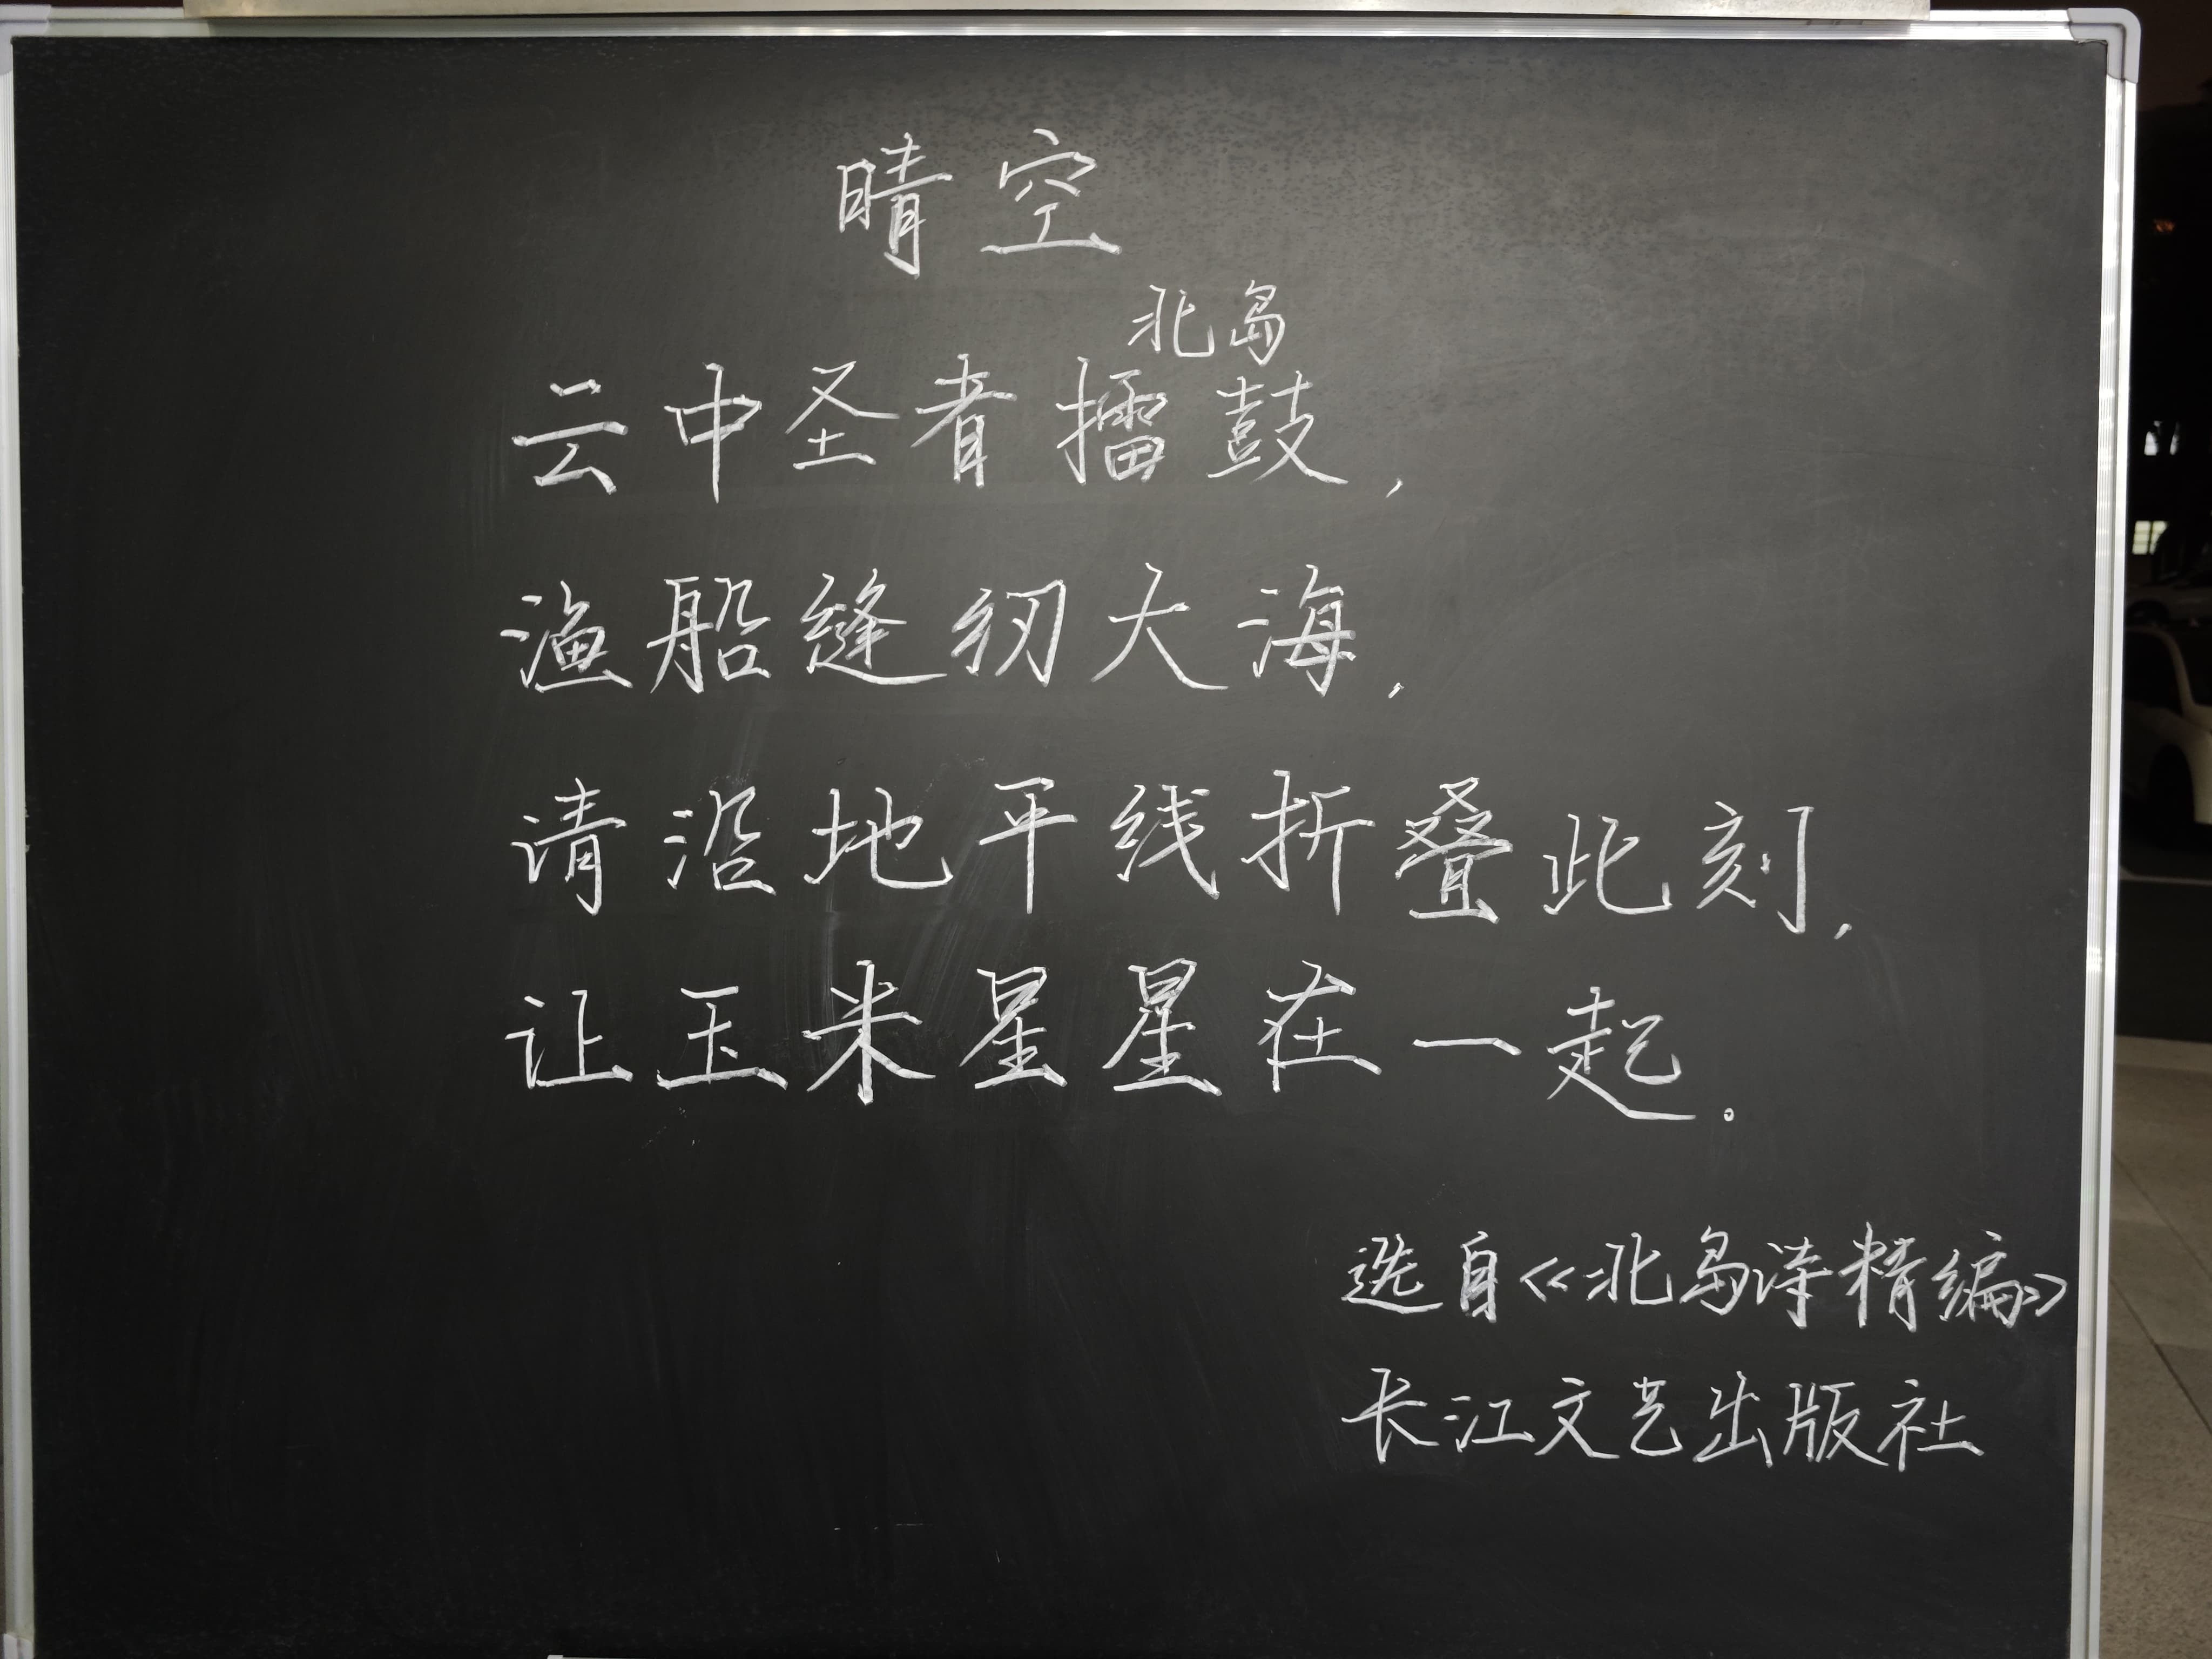 晴空
北岛
云中圣者擂鼓，
渔船缝纫大海，
请沿地平线折叠此刻，
让玉米星星在一起。
选自《北岛诗精编》
长江文艺出版社